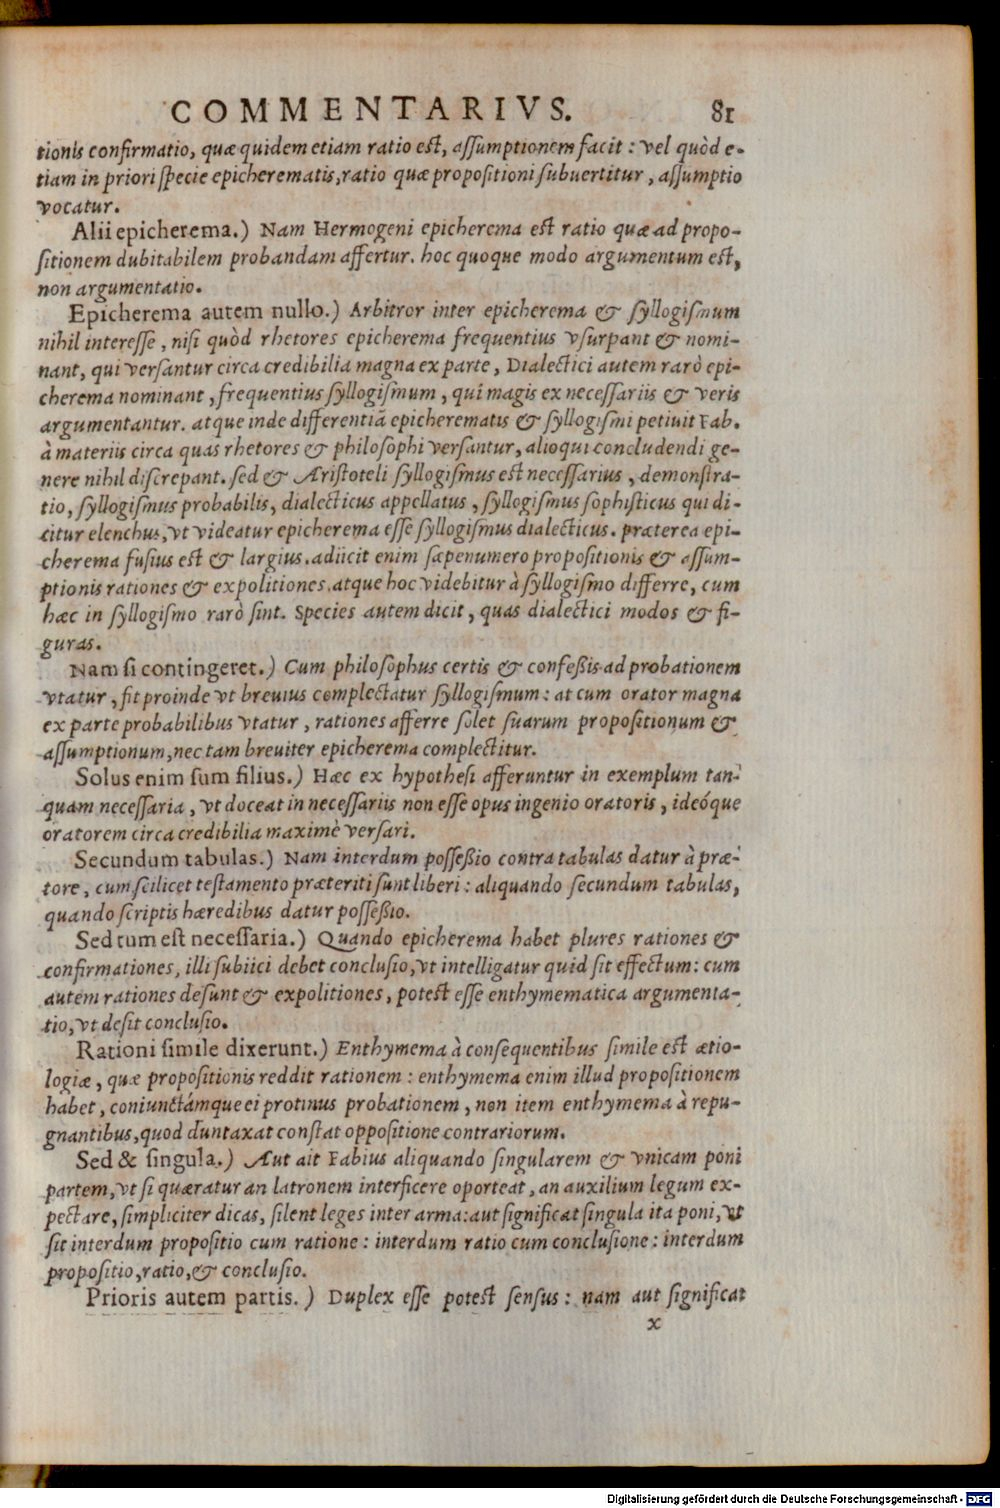 COMMENTARIVS. 81
tionis confirmatio, quæ quidem etiam ratio est, aſſumptionem facit : vel quòd e-
tiam in priori ſpecie epicherematis, ratio quæ propoſitioni ſubuertitur, aſſumptio
vocatur.
Alii epicherema.) Nam Hermogeni epicherema est ratio quæ ad propo-
ſitionem dubitabilem probandam affertur. hoc quoque modo argumentum est,
non argumentatio.
Epicherema autem nullo.) Arbitror inter epicherema & ſyllogiſmum
nihil intereſſe, niſi quòd rhetores epicherema frequentius vſurpant & nomi-
nant, qui verſantur circa credibilia magna ex parte, Dialectici autem rarò epi-
cherema nominant, frequentius ſyllogiſmum, qui magis ex neceſſariis & veris
argumentantur. atque inde differentiā epicherematis & ſyllogiſmi petiuit Fab.
à materiis circa quas rhetores & philoſophi verſantur, alioqui concludendi ge-
nere nihil diſcrepant. ſed & Ariſtoteli ſyllogiſmus est neceſſarius, demonſtra-
tio, ſyllogiſmus probabilis, dialecticus appellatus, ſyllogiſmus ſophiſticus qui di-
citur elenchus, vt videatur epicherema eſſe ſyllogiſmus dialecticus. præterea epi-
cherema fuſius est & largius. adiicit enim ſæpenumero propoſitionis & aſſum-
ptionis rationes & expolitiones. atque hoc videbitur à ſyllogiſmo differre, cum
hæc in ſyllogiſmo rarò ſint. Species autem dicit, quas dialectici modos & fi-
guras.
Nam ſi contingeret.) Cum philoſophus certis & confeßis ad probationem
vtatur, fit proinde vt breuius complectatur ſyllogiſmum : at cum orator magna
ex parte probabilibus vtatur, rationes afferre ſolet ſuarum propoſitionum &
aſſumptionum, nec tam breuiter epicherema complectitur.
Solus enim ſum filius.) Hæc ex hypotheſi afferuntur in exemplum tan-
quam neceſſaria, vt doceat in neceſſariis non eſſe opus ingenio oratoris, ideóque
oratorem circa credibilia maximè verſari.
Secundum tabulas.) Nam interdum poſſeßio contra tabulas datur à præ-
tore, cum ſcilicet teſtamento præteriti ſunt liberi : aliquando ſecundum tabulas,
quando ſcriptis hæredibus datur poſſeßio.
Sed tum eſt neceſſaria.) Quando epicherema habet plures rationes &
confirmationes, illi ſubiici debet concluſio, vt intelligatur quid ſit effectum : cum
autem rationes deſunt & expolitiones, potest eſſe enthymematica argumenta-
tio, vt deſit concluſio.
Rationi ſimile dixerunt.) Enthymema à conſequentibus ſimile est ætio-
logiæ, quæ propoſitionis reddit rationem : enthymema enim illud propoſitionem
habet, coniunctámque ei protinus probationem, non item enthymema à repu-
gnantibus, quod duntaxat conſtat oppoſitione contrariorum.
Sed & ſingula.) Aut ait Fabius aliquando ſingularem & vnicam poni
partem, vt ſi quæratur an latronem interficere oporteat, an auxilium legum ex-
pectare, ſimpliciter dicas, ſilent leges inter arma : aut ſignificat ſingula ita poni, vt
ſit interdum propoſitio cum ratione : interdum ratio cum concluſione : interdum
propoſitio, ratio, & concluſio.
Prioris autem partis.) Duplex eſſe potest ſenſus : nam aut ſignificat
x
Digitalisierung gefördert durch die Deutsche Forschungsgemeinschaft - DFG